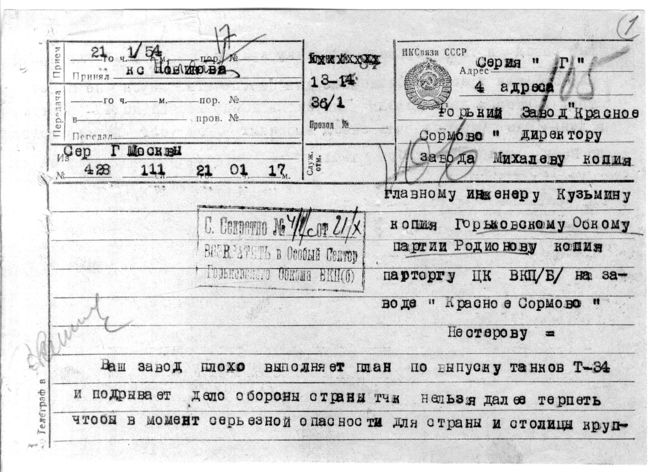 (1
17
Прием
21 1/54
го ч. м. пор. №
Принял кс Новикова
Передача
го ч. м. пор. №
в проз. №
Передал
Сер Г Москвы
Из
№ 428 111 сл. 21 го 01 ч. 17 м.
13-14
36/1
Провод №
Служ. отм.
НКСвязи СССР
Серия "Г"
Адрес
4 адреса
105
Горький Завод "Красное
Сормово" директору
завода Михалеву копия
главному инженеру Кузьмину
копия Горьковскому Обкому
партии Родионову копия
парторгу ЦК ВКП/Б/ на за-
воде "Красное Сормово"
Нестерову =
С. Секретно № от 21/X
ВОЗВРАТИТЬ в Особый Сектор
Горьковского Обкома ВКП(б)
Телеграф в
Ваш завод плохо выполняет план по выпуску танков Т-34
и подрывает дело обороны страны тчк нельзя далее терпеть
чтобы в момент серьезной опасности для страны и столицы круп-